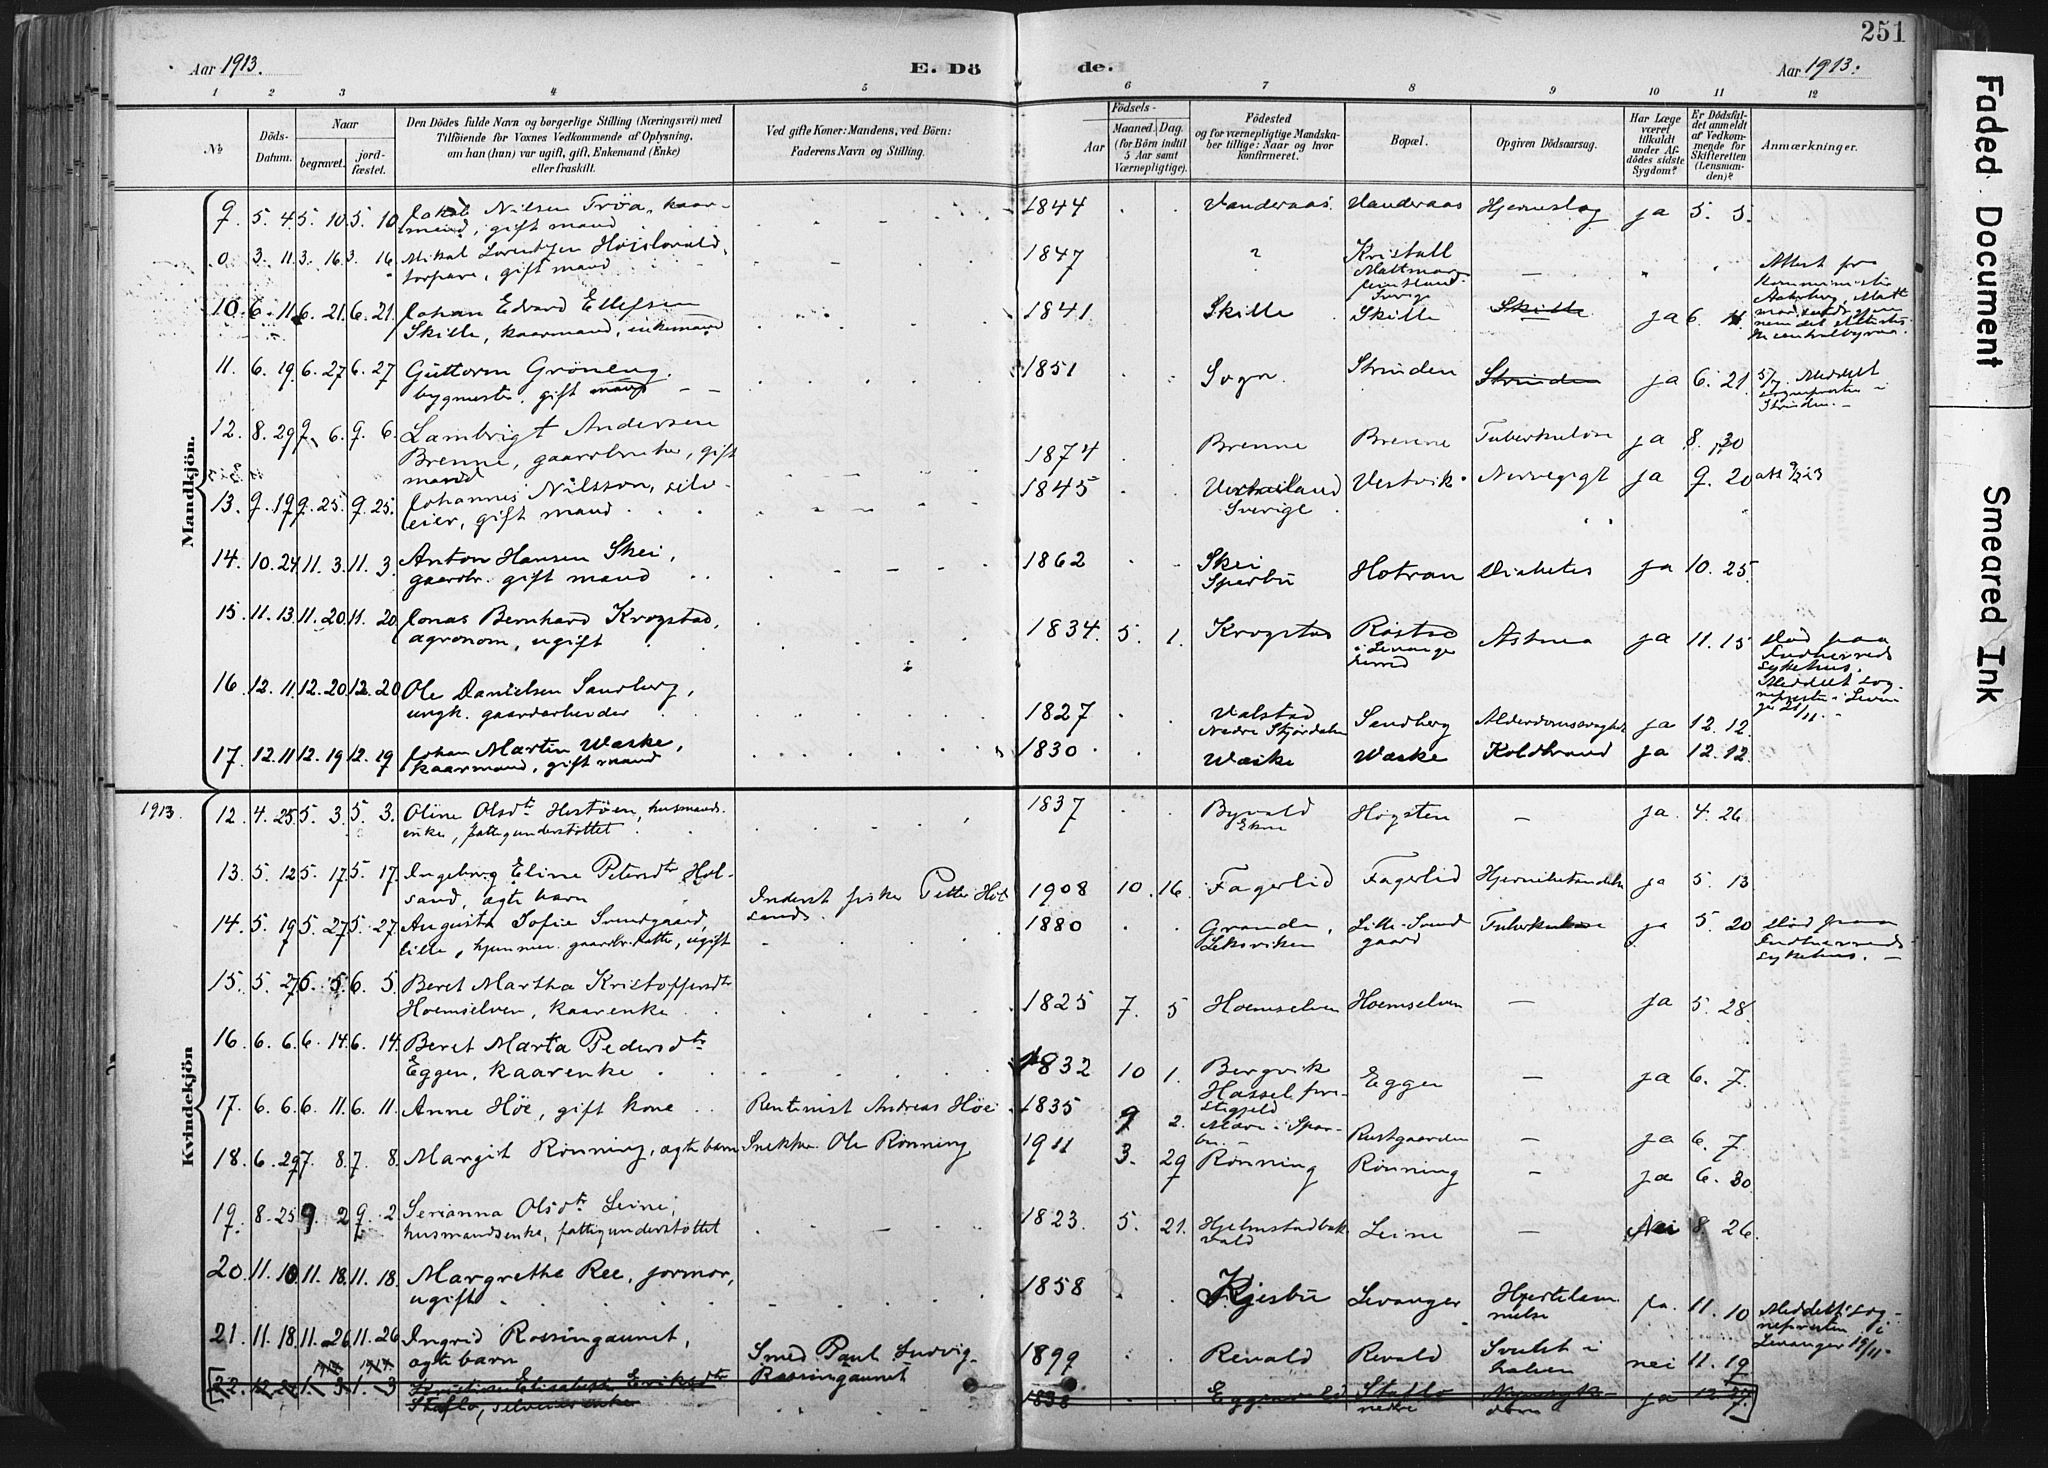 251
Aar 1913.
E. Dö
de.
Aar 1913.
1 2 3 4 5 6 7 8 9 10 11 12
No
Döds-
Datum.
Naar
begravet.
jord-
fæstet.
Den Dödes fulde Navn og borgerlige Stilling (Næringsvei) med
Tilföiende for Voxnes Vedkommende af Oplysning,
om han (hun) var ugift, gift, Enkemand (Enke)
eller fraskilt.
Ved gifte Koner: Mandens, ved Börn:
Faderens Navn og Stilling.
Födsels-
Aar
Maaned. Dag
(for Börn indtil
5 Aar samt
Værnepligtige).
Födested
og for værnepligtige Mandska-
ber tillige: Naar og hvor
konfirmeret.
Bopæl.
Opgiven Dödsaarsag.
Har Læge
været
tilkaldt
under Af-
dödes sidste
Sygdom?
Er Dödsfal-
det anmeldt
af Vedkom-
mende for
Skifteretten
(Lensman-
den)?
Anmærkninger.
Mandkjön.
9 5. 4 5. 10 5. 10 Jakob Nilsen Tröa, kaar-
mand, gift mand 1844 Vanderaas Vanderaas Hjerneslag ja 5. 5.
0 3. 11 3. 16 3. 16 Mikal Lorentzen
torpare, gift mand 1847 Kristall
Mattmar
Sverige
Attest fra
10 6. 11 6. 21 6. 21 Johan Edvard Ellefsen
Skille, kaarmand, enkemand 1841 Skille Skille Skille ja 6. 11.
11. 6. 19 6. 27 6. 27 Guttorm Gröneng.
bygmester, gift mand 1851 Sogn Strinden Strinden ja 6. 21 5/7 Meddelt
sognepresten i
Strinden.
12. 8. 29 9. 6. 9. 6. Lambrigt Andersen
Brenne, gaardbruker, gift
mand 1874 Brenne Brenne Tuberkulose ja 8. 30
13. 9. 19 9. 25. 9. 25. Johannes Nilsson, selv-
eier, gift mand 1845 Sverige Vestvik ja 9. 20
14. 10. 24 11. 3. 11. 3. Anton Hansen Skei,
gaardbr. gift mand 1862 Skei
Sparbu Hotran Diabetes ja 10. 25.
15. 11. 13. 11. 20. 11. 20 Jonas Bernhard Krogstad,
agronom, ugift 1834. 5. 1. Krogstad Röstad
i Levanger
herred Astma ja 11. 15 Död paa
Indherreds
sykehus.
Meddelt sog-
nepresten i Levan-
ger 21/11.
16 12. 11. 12. 20. 12. 20 Ole Danielsen Sandberg,
ungk. gaardarbeider 1827 Valstad
Nedre Stjördalen Sandberg Alderdomssvaghet ja 12. 12.
17. 12. 11 12. 19 12. 19 Johan Martin Wæske,
kaarmand, gift mand 1830 Wæske Wæske Koldbrand ja 12. 12.
1913.
Kvindekjön
12. 4. 25 5. 3. 5. 3. Oline Olsdtr Hestöen, husmands-
enke, fattigunderstöttet 1837 Byvald
Ekne Högsten — ja 4. 26
13. 5. 12 5. 17. 5. 17. Ingeborg Eline Petersdtr Hol-
sand, ægte barn Inderst fisker Petter Hol-
sand. 1908 10. 16. Fagerlid Fagerlid Hjernebetændelse ja 5. 13
14. 5. 19 5. 27 5. 27 Augusta Sofie Svendgaard,
lille, hjemmev. gaardbr.datter, ugift 1880 Grande,
Leksviken Lille-Svend-
gaard Tuberkulose ja 5. 20 Död paa
Indherreds
sykehus. —
15. 5. 27 6. 5. 6. 5 Beret Martha Kristoffersdtr
Hoemselven, kaarenke 1825 7. 5 Hoemselven Hoemselven — ja 5. 28.
16. 6. 6. 6. 14. 6. 14. Beret Marta Pedersdtr
Eggen, kaarenke 1832 10 1. Bergvik
Hassel pre-
stegjeld Eggen — ja 6. 7.
17. 6. 6. 6. 11. 6. 11. Anne Höe, gift kone Rentenist Andreas Höe 1835 9 2. i Spar-
bu Rustgaarden — ja 6. 7.
18. 6. 29 7. 8. 7. 8. Margit Rönning, ægte barn Snekker Ole Rönning 1911 3. 29 Rönning Rönning — ja 6. 30
19. 8. 25 9. 2 9. 2 Serianna Olsdtr Leine,
husmandsenke, fattigunderstöttet 1823. 5. 21. Hjelmstadbak-
vald Leine — Nei 8. 26.
20 11. 10 11. 18. 11. 18. Margrethe Ree, jormor,
ugift 1858 Kjesbu Levanger Hjertelam-
melse ja. 11. 10 Meddelt sog-
nepresten i
Levanger 15/11.
21. 11. 18. 11. 26 11. 26 Ingrid Rossingaunet,
ægte barn Smed Paul Ludvig
Rossingaunet 1899 Revald Revald Svulst i
halsen nei 11. 19
22. 12. 24 1. 3 1. 3 1914. 1914. Kristine Elisabeth Eriksdtr
Staflo, selveierenke 1838 Staflo
nedre ja 12. 27.
Faded Document
Smeared Ink